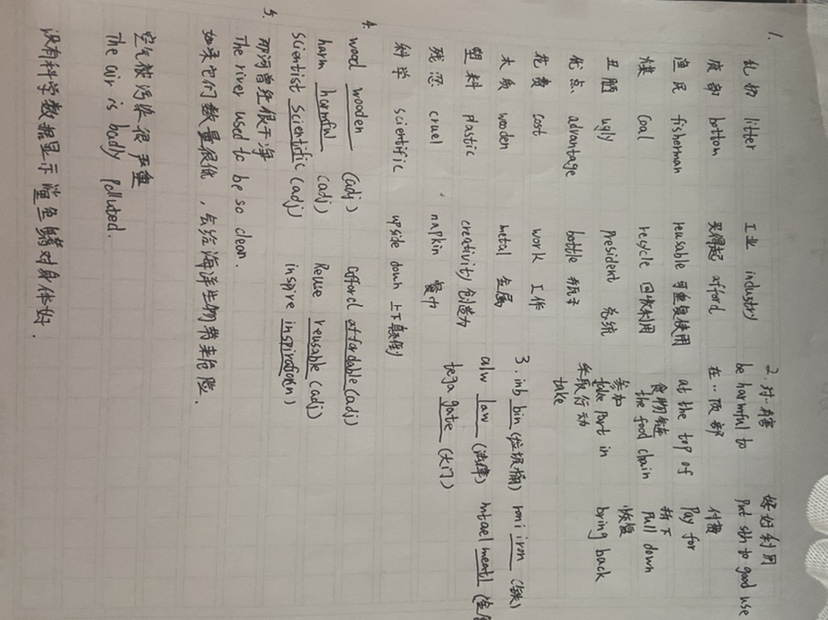 1.
乱扔 litter 工业 industry
底部 bottom 买得起 afford
渔民 fisherman reusable 可重复使用
煤 coal recycle 回收利用
丑陋 ugly President 总统
优点 advantage bottle 瓶子
花费 cost work 工作
木质 wooden metal 金属
塑料 plastic creativity 创造力
残忍 cruel napkin 餐巾
科学 scientific upside down 上下颠倒
2. 对…有害 好好利用
be harmful to put sth to good use
在…顶部 付费
at the top of Pay for
食物链 拆下
the food chain Pull down
参加 恢复
take part in bring back
采取行动
take
3. inb bin (垃圾桶) roni iron (铁)
alw law (法律) mtael meatl
tega gate (大门)
4.
wood wooden (adj) afford affordable (adj)
harm harmful (adj) Reuse reusable (adj)
scientist scientific (adj) inspire inspiration (n)
5. 那河曾经很干净
The river used to be so clean.
如果它们数量很低，会给海洋生物带来危险.
空气被污染很严重
The air is badly polluted.
没有科学数据显示鲨鱼鳍对身体好.